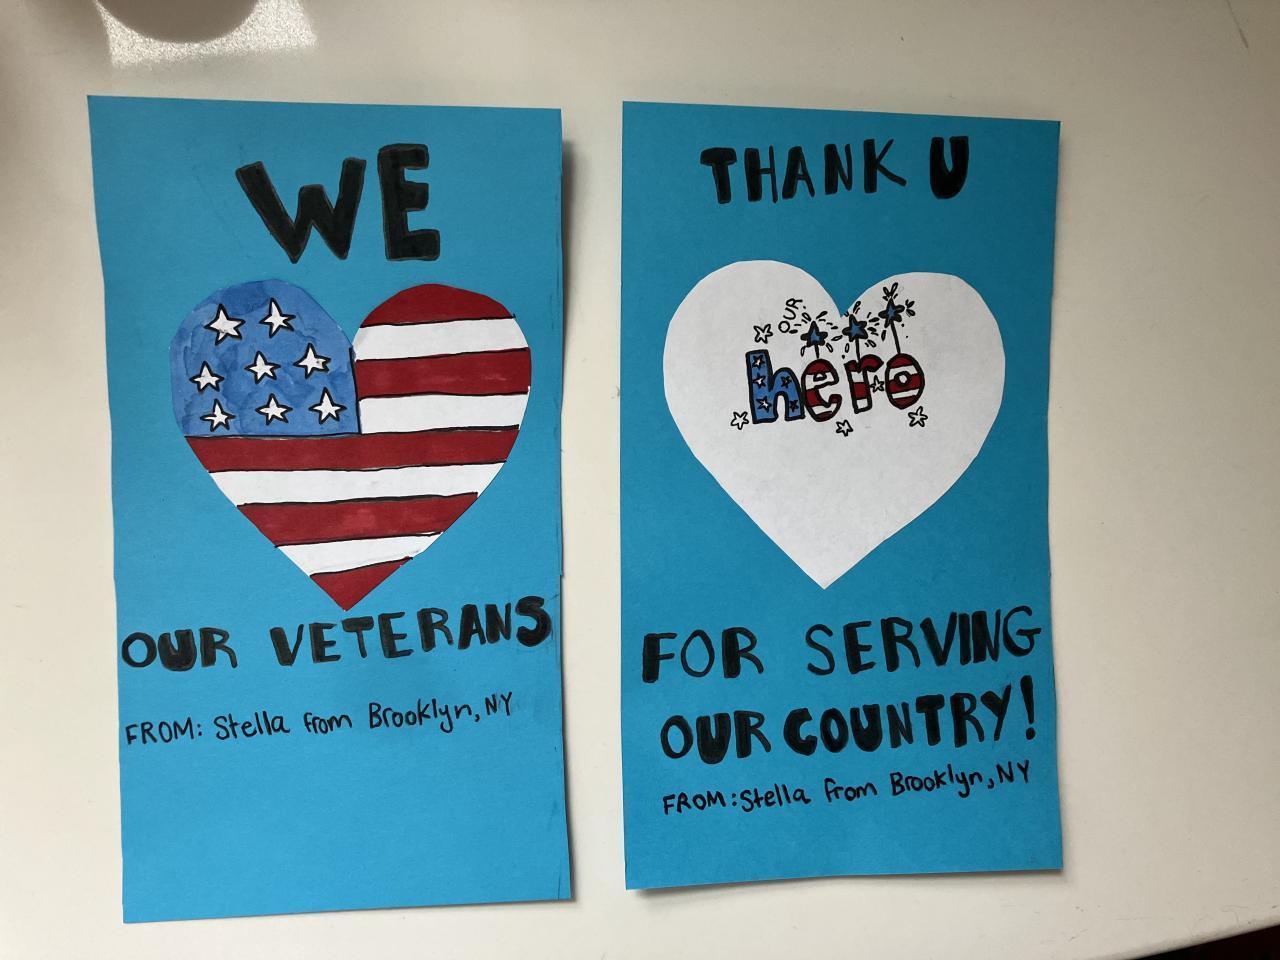 WE
OUR VETERANS
FROM: Stella from Brooklyn, NY
THANK U
OUR
hero
FOR SERVING
OUR COUNTRY!
FROM: Stella from Brooklyn, NY